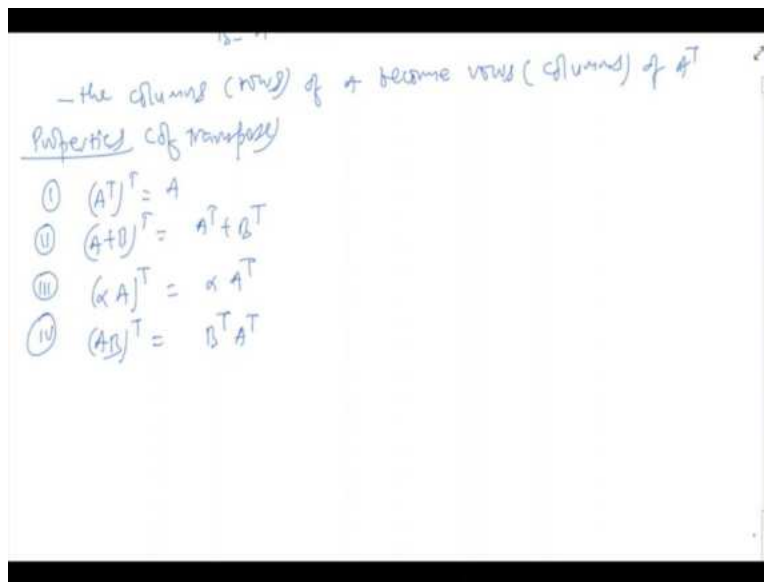 - the columns (rows) of A become rows (columns) of A^T
Properties (of transpose)
(I) (A^T)^T = A
(II) (A+B)^T = A^T + B^T
(III) (α A)^T = α A^T
(IV) (AB)^T = B^T A^T